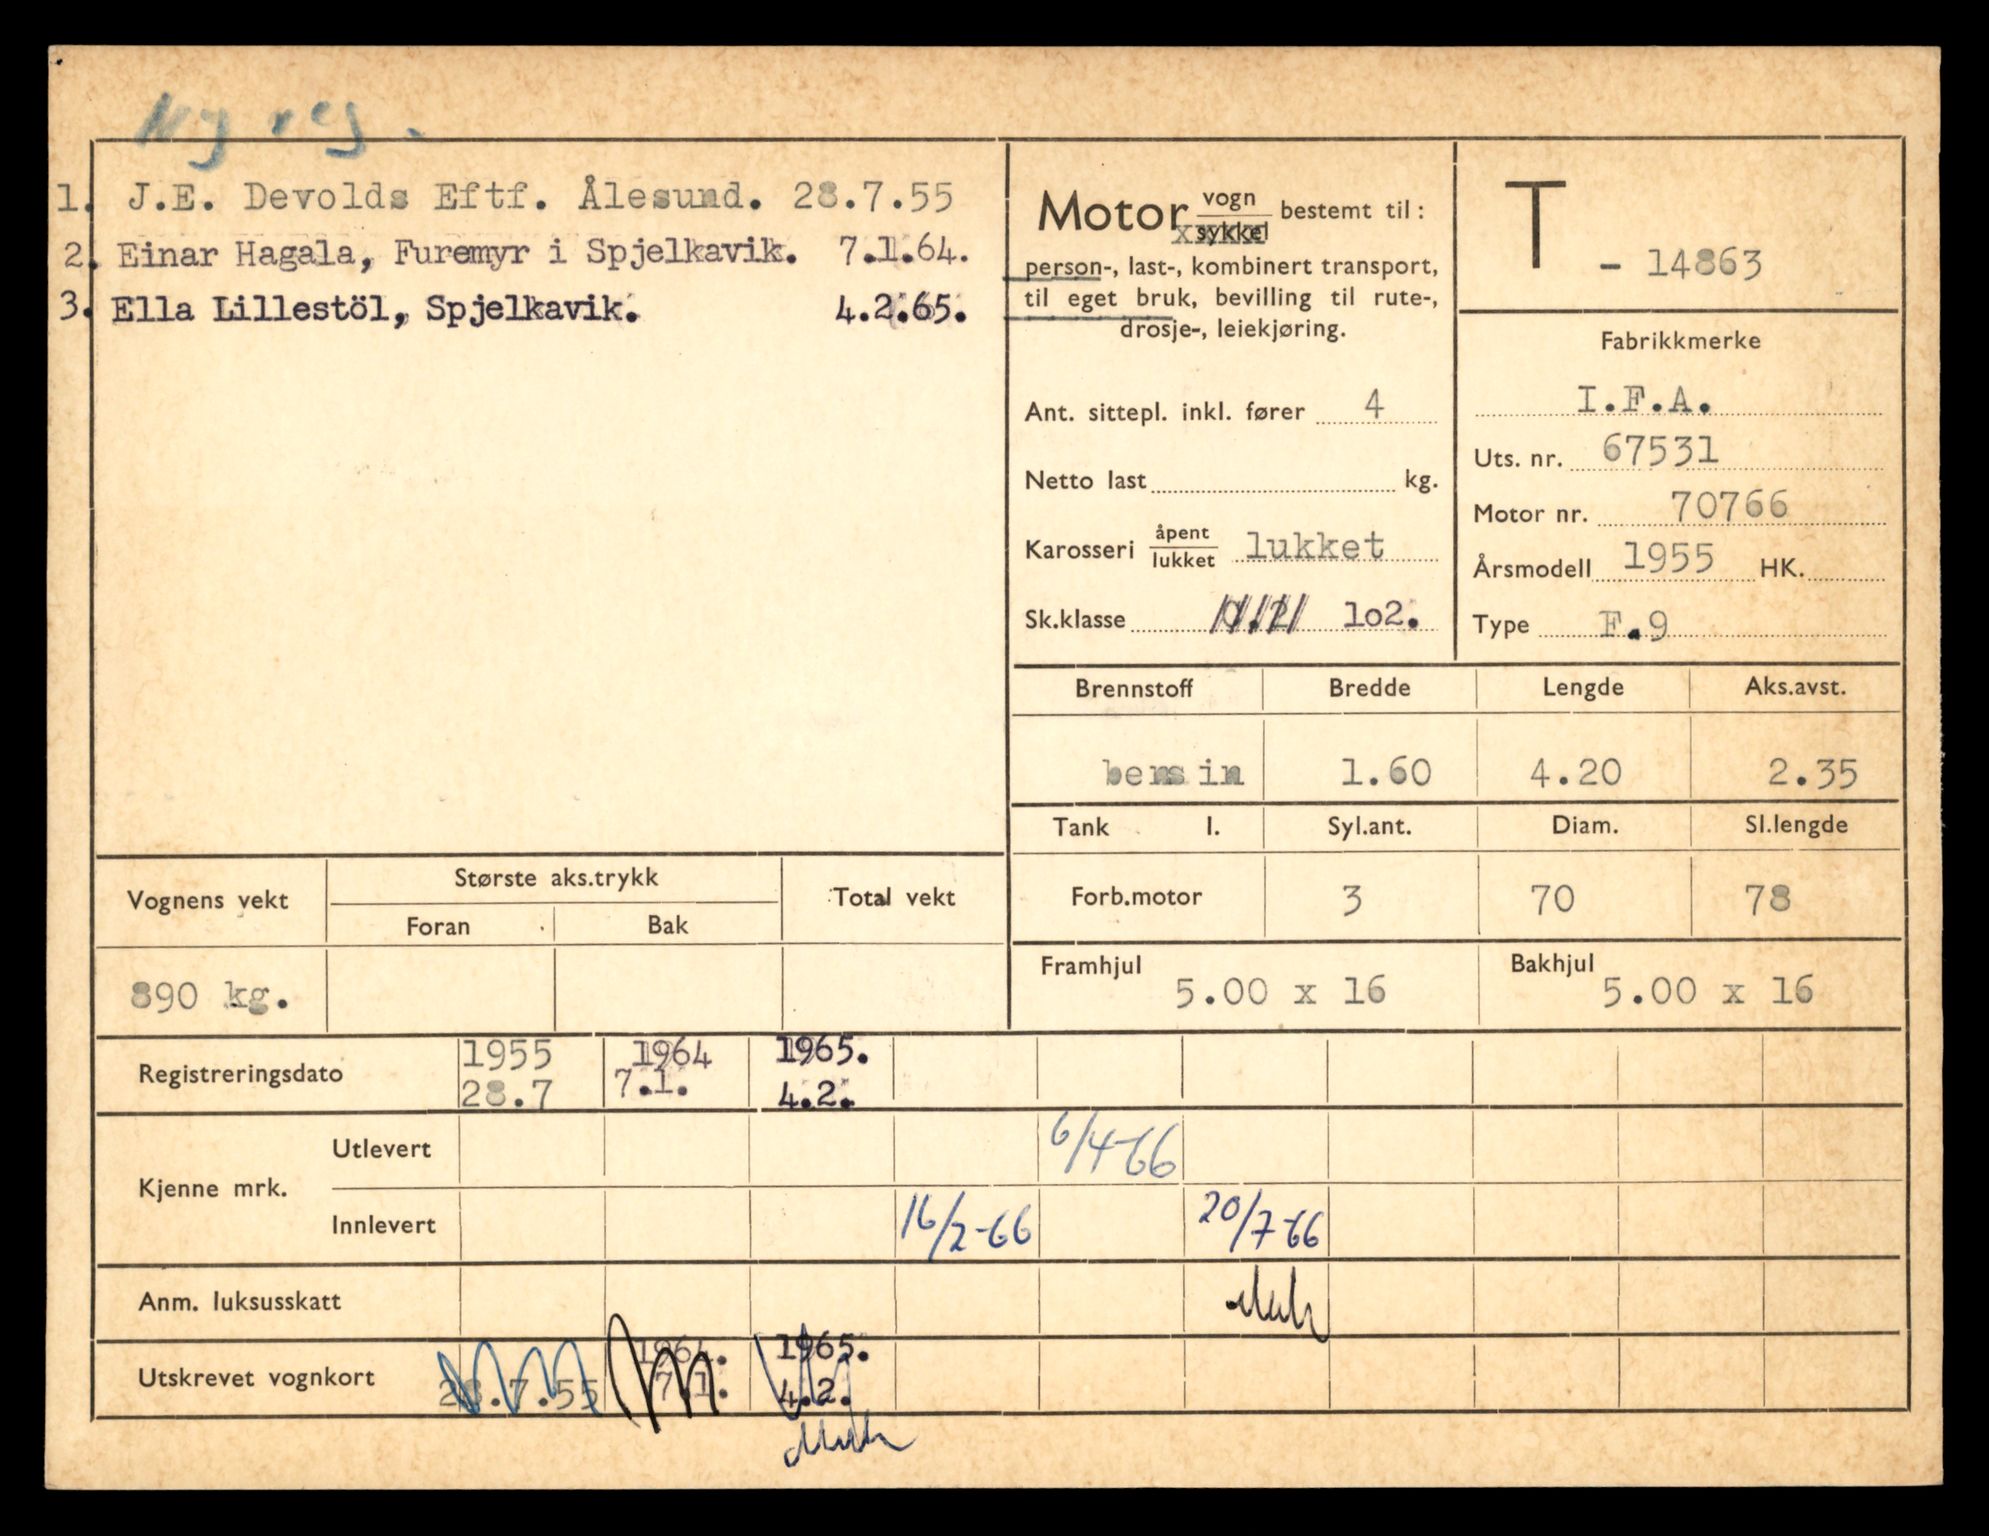 Ny reg.
1. J.E. Devolds Eftf. Ålesund. 28.7.55
2. Einar Hagala, Furemyr i Spjelkavik. 7.1.64.
3. Ella Lillestöl, Spjelkavik. 4.2.65.
Motor vogn sykkel bestemt til:
person-, last-, kombinert transport,
til eget bruk, bevilling til rute-,
drosje-, leiekjøring.
Ant. sittepl. inkl. fører 4
Netto last kg.
Karosseri åpent lukket lukket
Sk.klasse 1o2.
T - 14863
Fabrikkmerke
I.F.A.
Uts. nr. 67531
Motor nr. 70766
Årsmodell 1955 HK.
Type F.9
Brennstoff Bredde Lengde Aks.avst.
bensin 1.60 4.20 2.35
Tank l. Syl.ant. Diam. Sl.lengde
Forb.motor 3 70 78
Framhjul 5.00 x 16 Bakhjul 5.00 x 16
Vognens vekt Største aks.trykk Total vekt
Foran Bak
890 kg.
Registreringsdato 1955 1964 1965.
28.7 7.1. 4.2.
Kjenne mrk. Utlevert 6/4-66
Innlevert 16/2-66 20/7-66
Anm. luksusskatt
Utskrevet vognkort 28.7.55 1964. 7.1. 1965. 4.2.